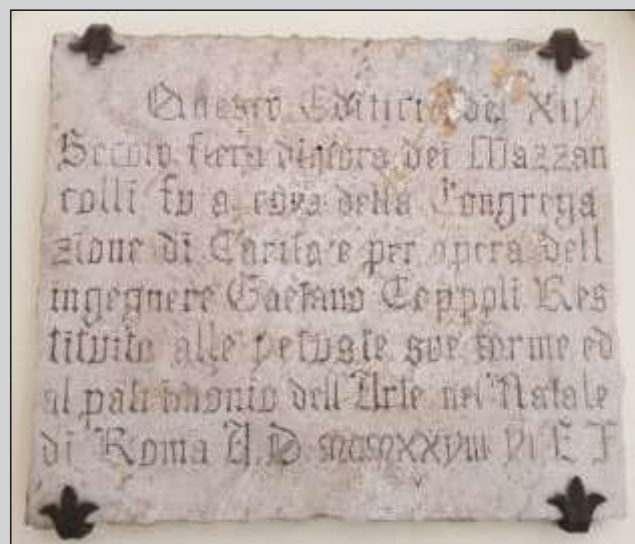 Questo Edificio del XIV
Secolo fiera dimora dei Mazzan
colli fu a cura della Congrega
zione di Carita e per opera dell
ingegnere Gaetano Coppoli Res
tituito alle vetuste sue forme ed
al patrimonio dell Arte nel Natale
di Roma A. D. MCMXXVIII VI E F